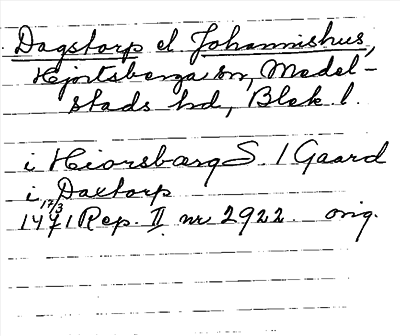 Dagstorp el Johannishus,
Hjortsberga sn, Medel-
stads hd, Blek. l.
i Hiorsbærg S. 1 Gaard
i Daxtorp
17/3
1471 Rep. II nr 2922. orig.